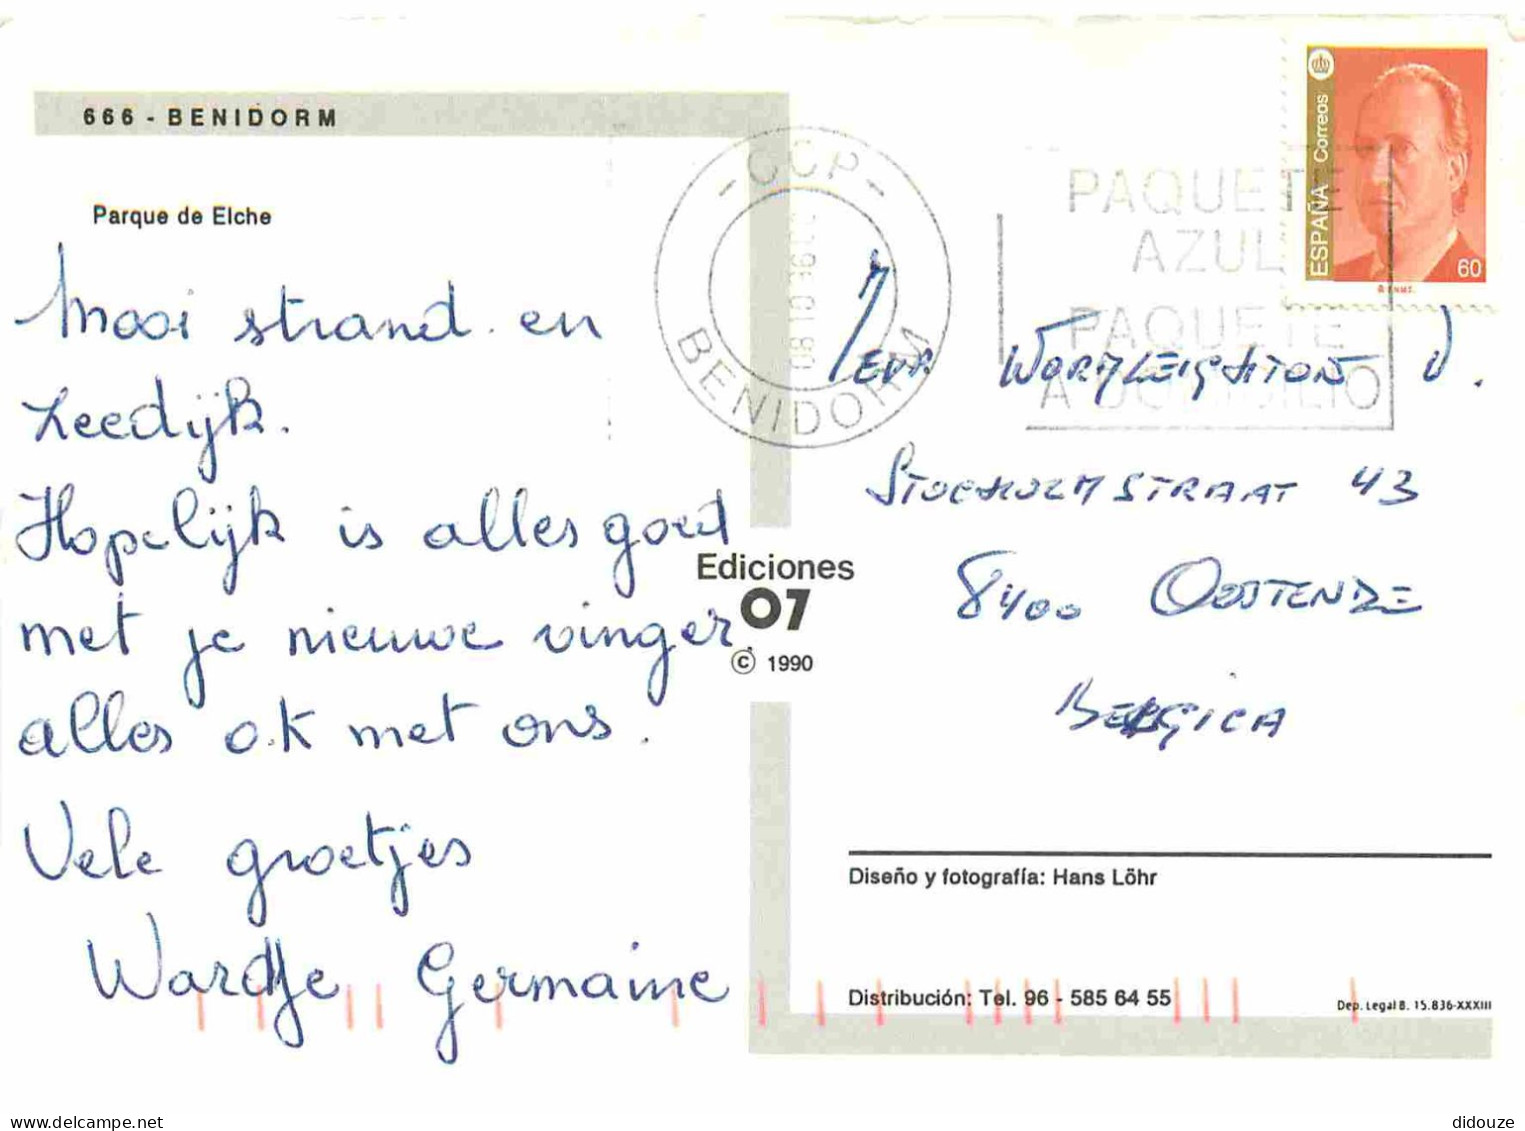 666 - BENIDORM
Parque de Elche
Mooi strand en
Zeedijk.
Hopelijk is alles goed
met je nieuwe vinger
alles o.k met ons.
Vele groetjes
Wardje Germaine
Ediciones
07
© 1990
- CCP -
BENIDORM
PAQUETE
AZUL
PAQUETE
A DOMICILIO
ESPAÑA Correos
60
WORMLEIGHTON V.
STOCKHOLMSTRAAT 43
8400 OOSTENDE
BELGICA
Diseño y fotografía: Hans Löhr
Distribución: Tel. 96 - 585 64 55
Dep. Legal B. 15.836-XXXIII
didouze